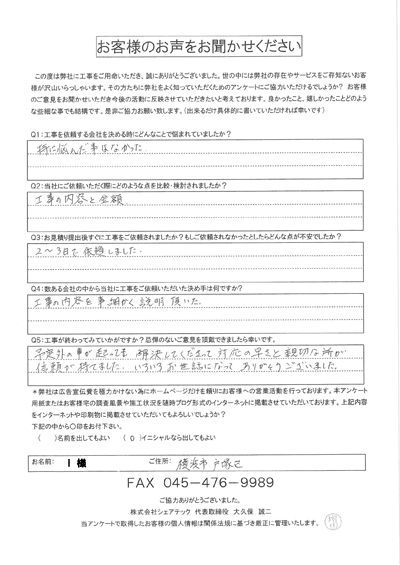 お客様のお声をお聞かせください
この度は弊社に工事をご用命いただき、誠にありがとうございました。世の中には弊社の存在やサービスをご存知ないお客
様が沢山いらっしゃいます。その方たちに弊社をよく知っていただくためのアンケートにご協力いただけるでしょうか？ お客様
のご意見をお聞かせいただき今後の活動に反映させていただきたいと考えております。良かったこと、嬉しかったことどのよう
な些細な事でも結構です。是非ご協力お願い致します。（出来るだけ具体的に書いていただければ幸いです）
Q1：工事を依頼する会社を決める時にどんなことで悩まれていましたか？
特に悩んだ事はなかった
Q2：当社にご依頼いただく際にどのような点を比較・検討されましたか？
工事の内容と金額
Q3：お見積り提出後すぐに工事をご依頼されましたか？もしご依頼されなかったとしたらどんな点が不安でしたか？
2～3日で依頼しました.
Q4：数ある会社の中から当社に工事をご依頼いただいた決め手は何ですか？
工事の内容を事細かく説明頂いた.
Q5：工事が終わってみていかがですか？忌憚のないご意見を頂戴できましたら幸いです。
予定外の事が起っても 解決してくださって 対応の早さと親切な所が
信頼が持てました. いろいろお世話になって ありがとうございました.
＊弊社は広告宣伝費を極力かけない為にホームページだけを頼りにお客様への営業活動を行っております。本アンケート
用紙またはお客様宅の調査風景や施工状況を随時ブログ形式のインターネットに掲載させていただいております。上記内容
をインターネットや印刷物に掲載させていただいてもよろしいでしょうか？
下記の中から〇印をお付下さい。
（ ）名前を出してもよい （ O ）イニシャルなら出してもよい
お名前： I 様 ご住所： 横浜市 戸塚区
FAX 045-476-9989
ご協力ありがとうございました。
株式会社シェアテック 代表取締役 大久保 誠二
当アンケートで取得したお客様の個人情報は関係法規に基づき厳正に管理いたします。